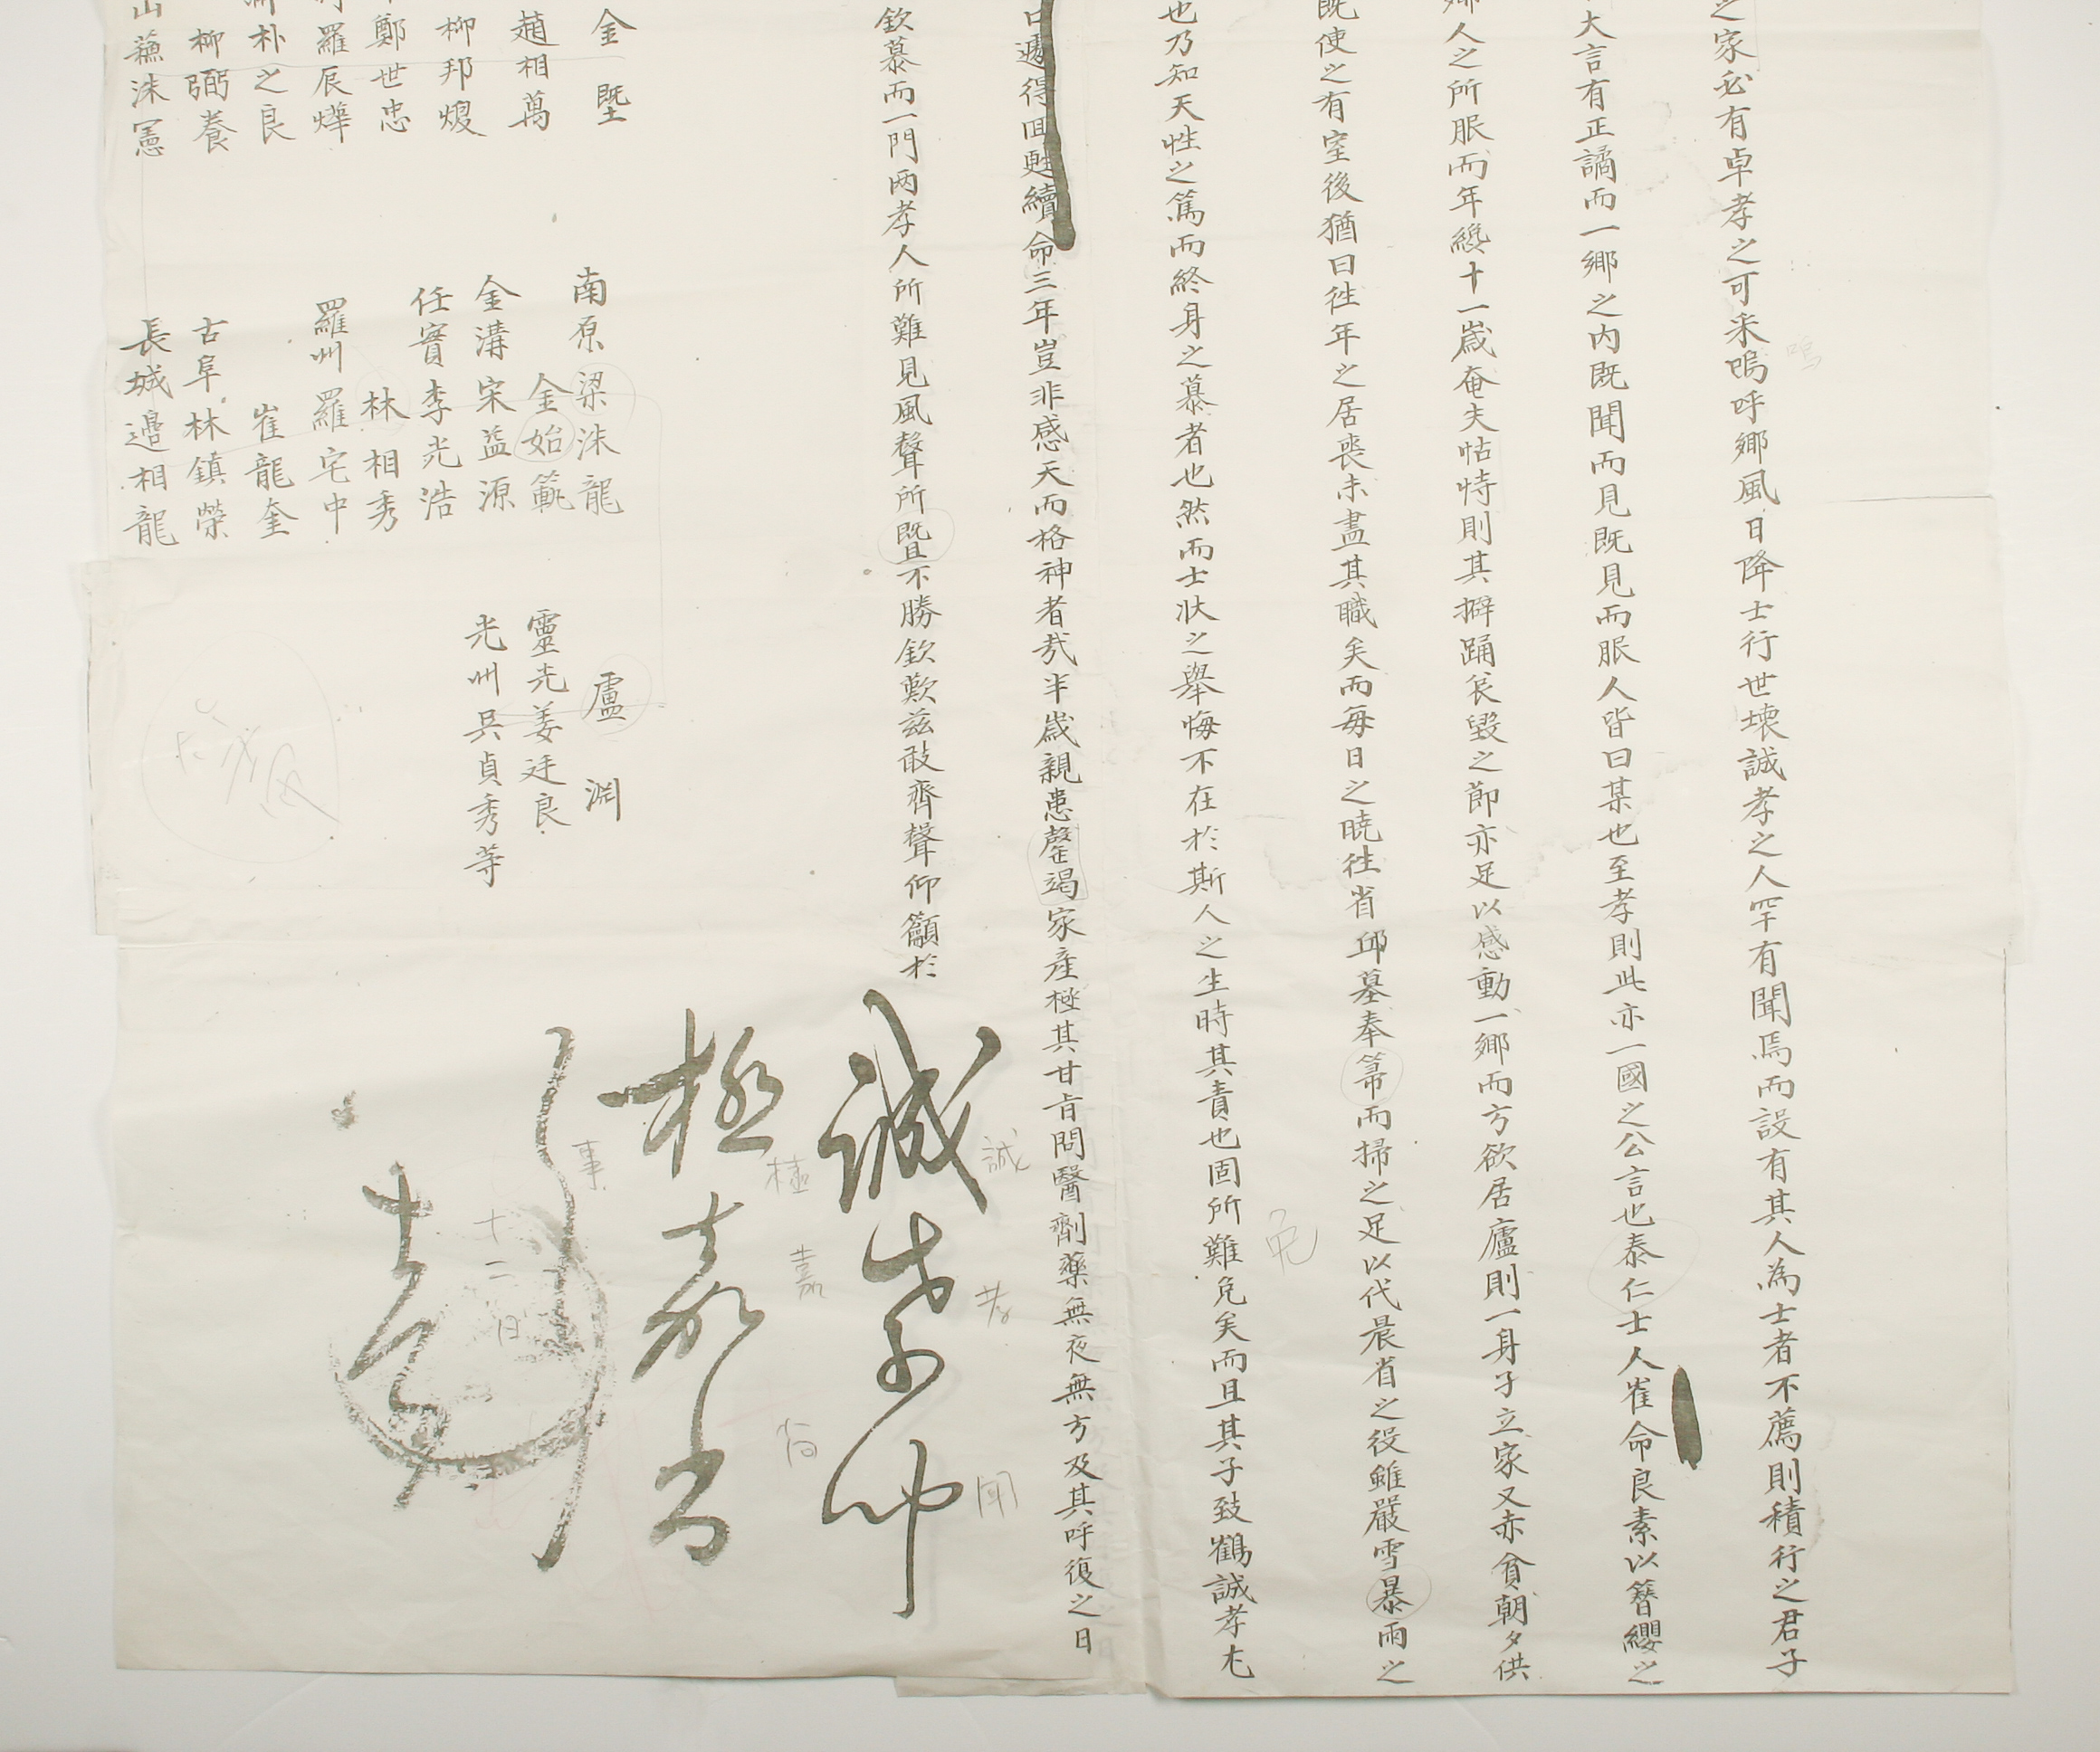 之家必有卓孝之可采嗚呼鄉風日降士行世壞誠孝之人罕有聞焉而設有其人為士者不薦則積行之君子
大言有正譎而一鄉之內既聞而見既見而服人皆曰某也至孝則此亦一國之公言也泰仁士人崔命良素以簪纓之
鄉人之所服而年纔十一歲奄失怙恃則其擗踊哀毀之節亦足以感動一鄉而方欲居廬則一身孑立家又赤貧朝夕供
既使之有室後猶曰徃年之居喪未盡其職矣而每日之曉徃省邱墓奉箒而掃之足以代晨省之役雖嚴雪暴雨之
也乃知天性之篤而終身之慕者也然而士狀之舉悔不在於斯人之生時其責也固所難免矣而且其子致鶴誠孝尤
口遞得回甦續命三年豈非感天而格神者哉半歲親患罄竭家產極其甘旨問醫劑藥無夜無方及其呼復之日
欽慕而一門兩孝人所難見風聲所曁不勝欽歎玆敢齊聲仰籲於
金墍
趙相萬
柳邦煖
鄭世忠
羅辰燁
朴之良
柳弼養
山蘓洙憲
南原梁洙龍
金始範
金溝宋益源
任實李光浩
林相秀
羅州羅宅中
崔龍奎
古阜林鎮榮
長城邊相龍
盧淵
靈光姜廷良
光州吳貞秀等
誠孝聞
極嘉尚
事
十二日
嗚
免
誠
孝
聞
極
嘉
尚